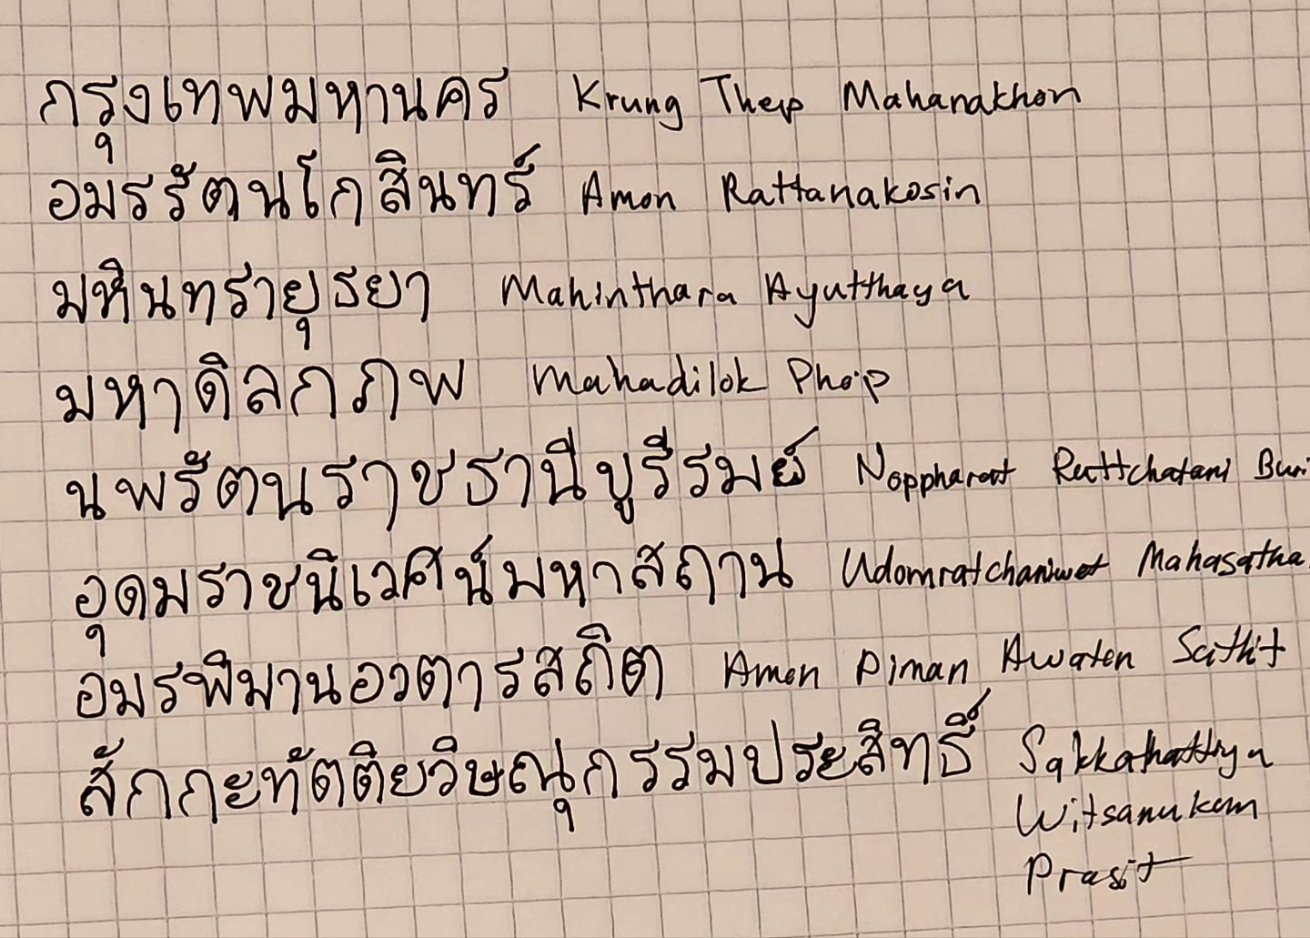 กรุงเทพมหานคร Krung Thep Mahanakhon
อมรรัตนโกสินทร์ Amon Rattanakosin
มหินทรายุธยา Mahinthara Ayutthaya
มหาดิลกภพ Mahadilok Phop
นพรัตนราชธานีบูรีรมย์ Noppharat Rattchatani Buri
อุดมราชนิเวศน์มหาสถาน Udomratchaniwet Mahasatha
อมรพิมานอวตารสถิต Amon Piman Awaten Sathit
สักกะทัตติยวิษณุกรรมประสิทธิ์ Sakkathattiya
Witsanukam
Prasit